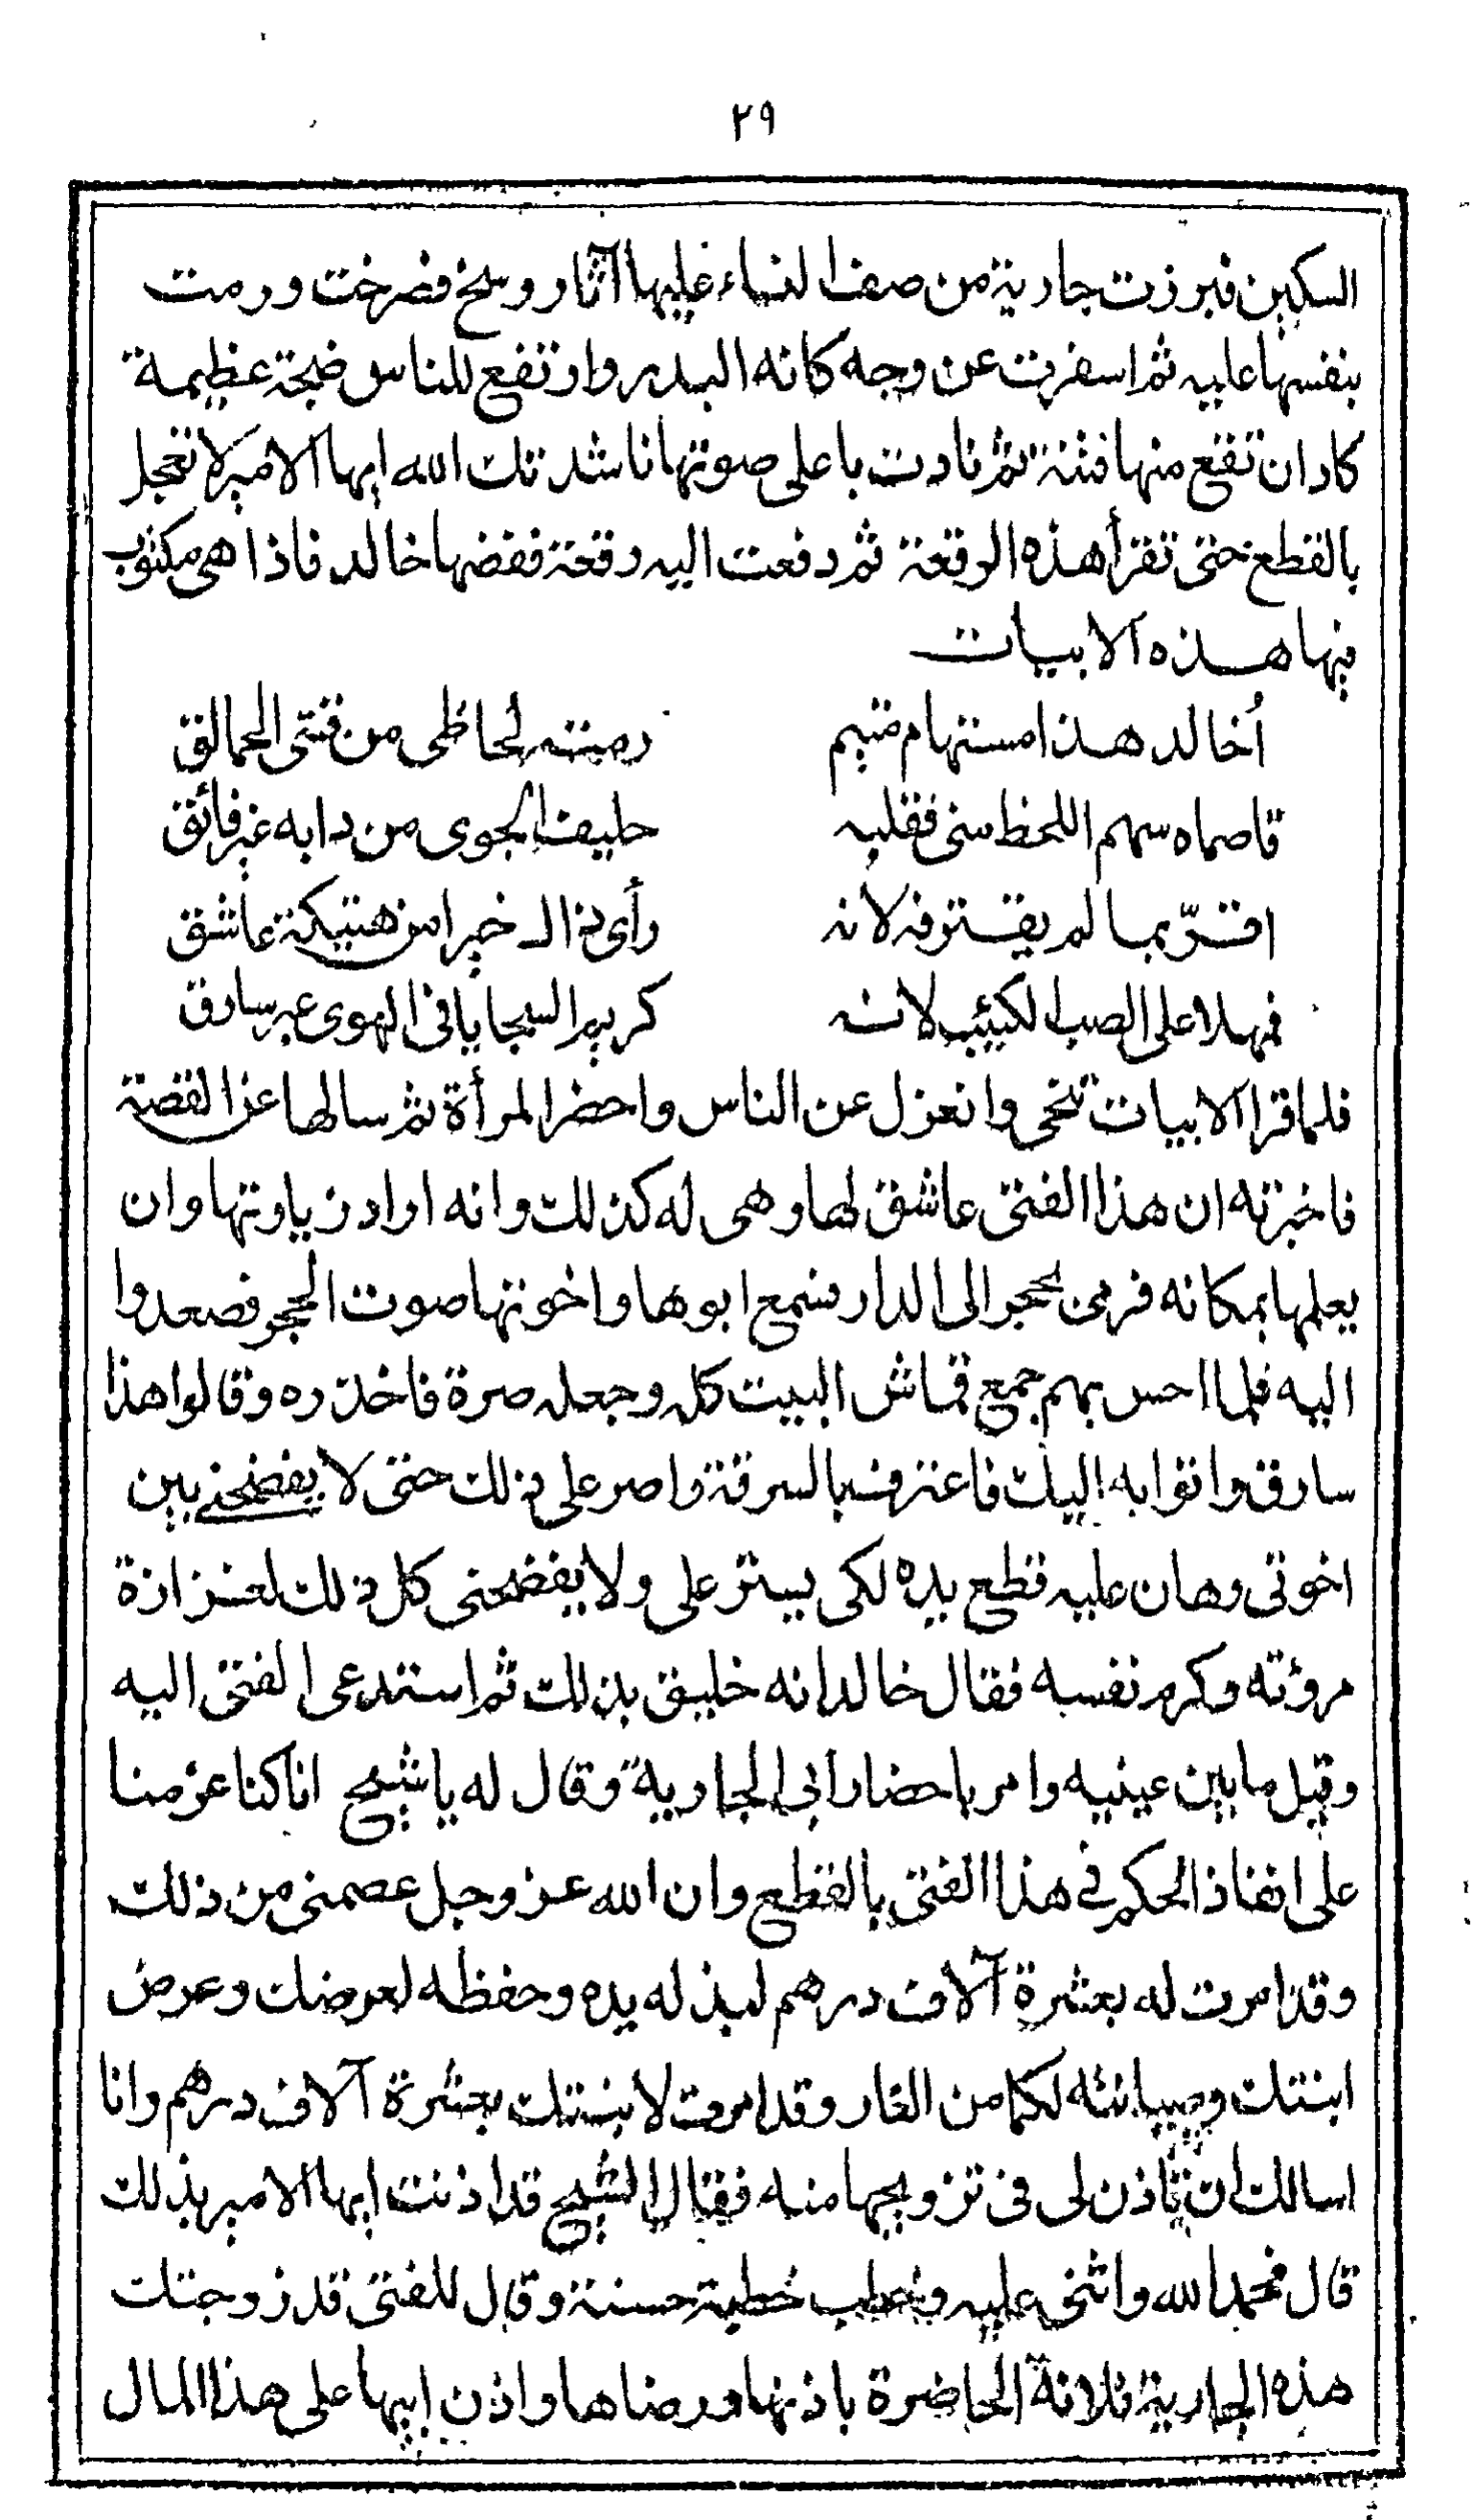 ٢٩
السكين فبرزت جارية من صف النساء عليها آثار وسخ فصرخت ورمت
بنفسها عليه ثم اسفرت عن وجه كانه البدر وارتفع للناس ضجة عظيمة
كاد ان تقع منها فتنة ثم نادت باعلى صوتها ناشدتك الله ايها الامير لا تعجل
بالقطع حتى تقرأ هذه الرقعة ثم دفعت اليه رقعة ففضها خالد فاذا هى مكتوب
فيها هذه الابيات
أخالد هذا مستهام متيم رمته لحاظى من قسى الحمالق
فاصماه سهم اللحظ منى فقلبه حليف الجوى من دابه غير فائق
اقرّ بما لم يقترفه لانه رأى ذاك خيرا من هتيكة عاشق
فمهلا على الصب الكئيب لانه كريم السجايا فى الهوى غير سارق
فلما قرا الابيات تنحى وانعزل عن الناس واحضر المرأة ثم سالها عن القصة
فاخبرته ان هذا الفتى عاشق لها وهى له كذلك وانه اراد زيارتها وان
يعلمها بمكانه فرمى بحجر الى الدار فسمع ابوها واخوتها صوت الحجر فصعدوا
اليه فلما احس بهم جمع قماش البيت كله وجعله صرة فاخذوه وقالوا هذا
سارق واتوا به اليك فاعترف بالسرقة واصر على ذلك حتى لا يفضحنى بين
اخوتى وهان عليه قطع يده لكى يستر على ولا يفضحنى كل ذلك لغزازة
مروءته وكرم نفسه فقال خالد انه خليق بذلك ثم استدعى الفتى اليه
وقبل ما بين عينيه وامر باحضار ابى الجارية وقال له يا شيخ انا كنا عزمنا
على انفاذ الحكم فى هذا الفتى بالقطع وان الله عز وجل عصمنى من ذلك
وقد امرت له بعشرة آلاف درهم لبذله يده وحفظه لعرضك وعرض
ابنتك وصيانته لكما من العار وقد امرت لابنتك بعشرة آلاف درهم وانا
اسالك ان تاذن لى فى تزويجها منه فقال الشيخ قد اذنت ايها الامير بذلك
قال فحمد الله واثنى عليه وخطب خطبة حسنة وقال للفتى قد زوجتك
هذه الجارية فلانة الحاضرة باذنها ورضاها واذن ابيها على هذا المال